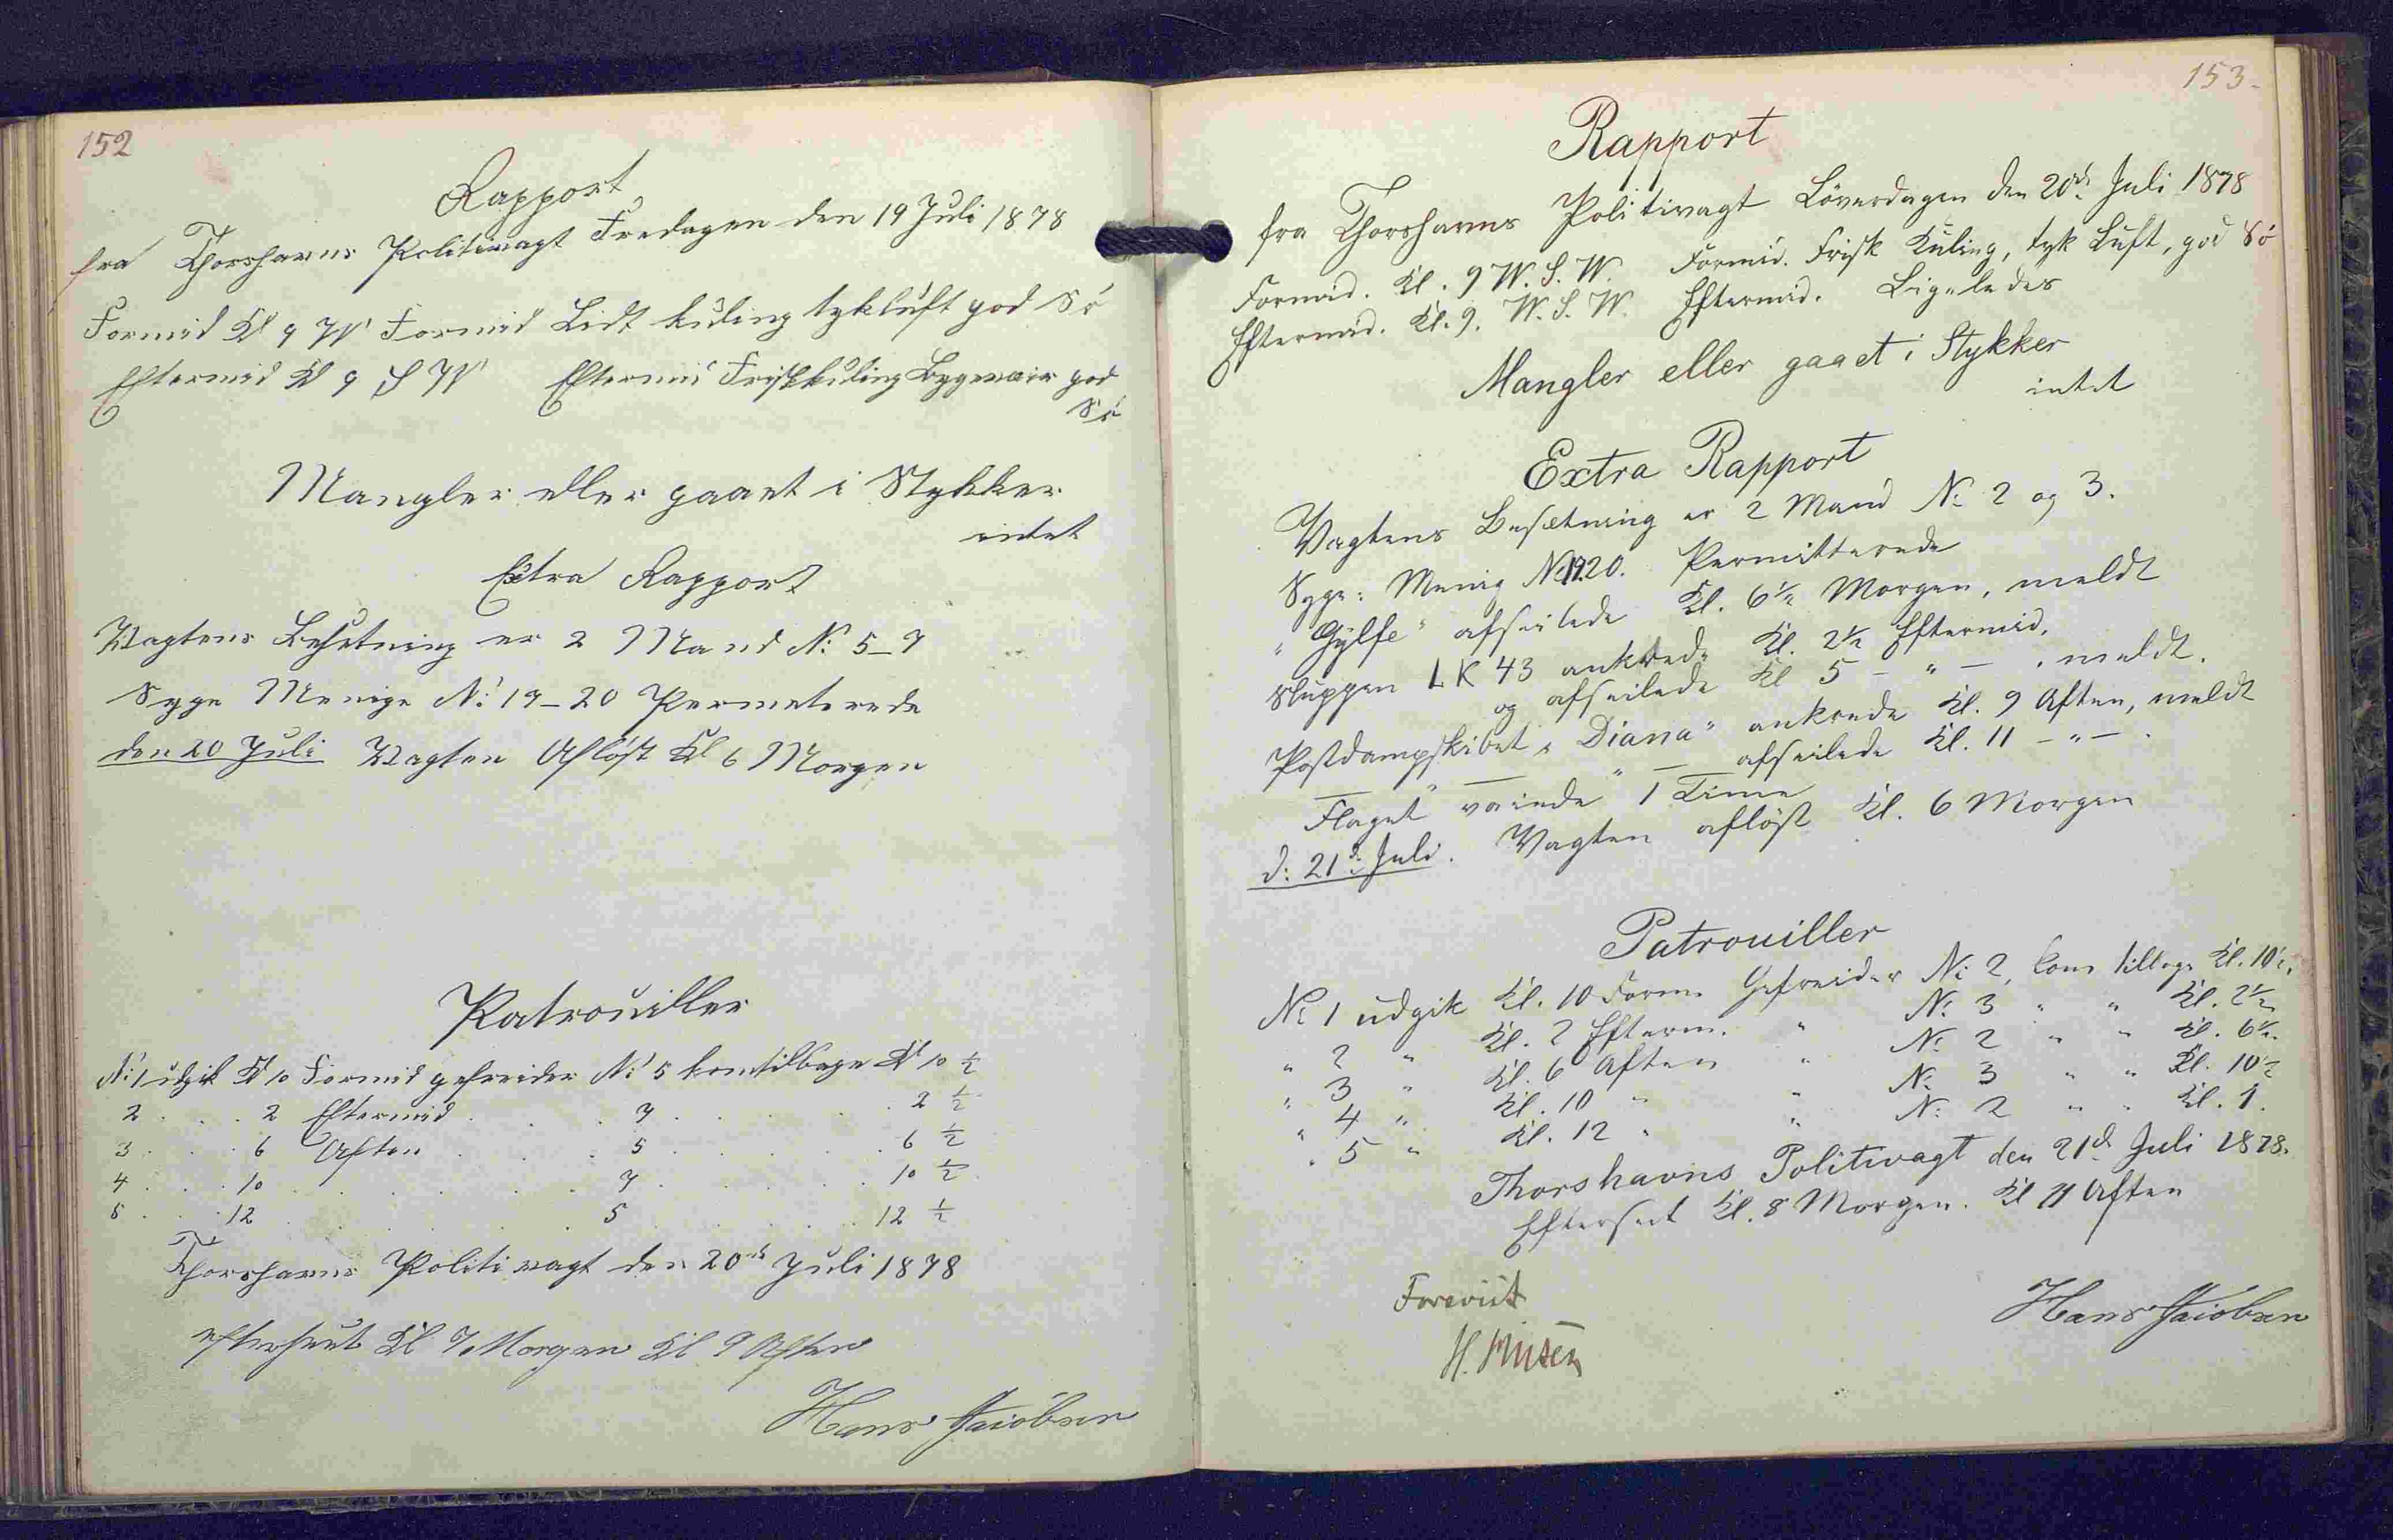 152
Rapport
fra Thorshavns Politivagt Fredagen den 19 Juli 1878
Formid Kl 9 W Formid Lidt kuling tykluft god Sö
Eftermid Kl 9 S W Eftermid Friskkuling Bygeveir god
Sö
Mangler eller gaaet i Stykker
intet
Extra Rapport
Vagtens Besetning er 2 Mand No 5-7
Syge Menige No 19-20 Permeterede
den 20 Juli Vagten Aflöst Kl 6 Morgen
Patrouiller
No 1 udgik Kl 10 Formid gefreider No 5 kom tilbage Kl 10 ½
2 . . . 2 Eftermid . . . 7 . . . . 2 ½
3 . . . 6 Aften . . . 5 . . . . 6 ½
4 . . . 10 . . . . . 7 . . . . 10 ½
5 . . . 12 . . . . . 5 . . . . 12 ½
Thorshavns Politivagt den 20de Juli 1878
efterseet Kl 7 Morgen Kl 9 Aften
Hans Jacobsen
153.
Rapport
fra Thorshavns Politivagt Löverdagen den 20de Juli 1878
Formid. Kl. 9 W. S. W. Formid. Frisk Kuling, tyk Luft, god Sö
Eftermid. Kl. 9. W. S. W. Eftermid. Ligeledes
Mangler eller gaaet i Stykker
intet
Extra Rapport
Vagtens Besætning er 2 Mand No 2 og 3.
Syge: Menig No 19.20. Permitterede
"Gylfe" afseilede Kl. 6½ Morgen, meldt
Sluppen LK 43 ankrede Kl. 2½ Eftermid.
og afseilede Kl 5 - " - , meldt.
Postdampskibet "Diana" ankrede Kl. 9 Aften, meldt
— " — " — afseilede Kl. 11 - " - .
Flaget vaiede 1 Time
d: 21de Juli. Vagten aflöst Kl. 6 Morgen
Patrouiller
No 1 udgik Kl. 10 Form. Gefreider No 2, kom tilbage Kl. 10½
" 2 " Kl. 2 Efterm. " No 3 " " Kl. 2½
" 3 " Kl. 6 Aften " No 2 " " Kl. 6½
" 4 " Kl. 10 " " No 3 " " Kl. 10½
" 5 " Kl. 12 " " No 2 " " Kl. 1.
Thorshavns Politivagt den 21de Juli 1878.
Efterseet Kl. 8 Morgen. Kl 11 Aften
Foreviist
Hans Jacobsen